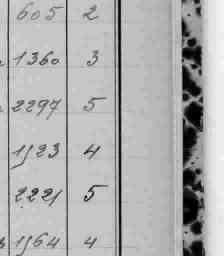 605 2
1360 3
2297 5
1523 4
2221 5
1564 4